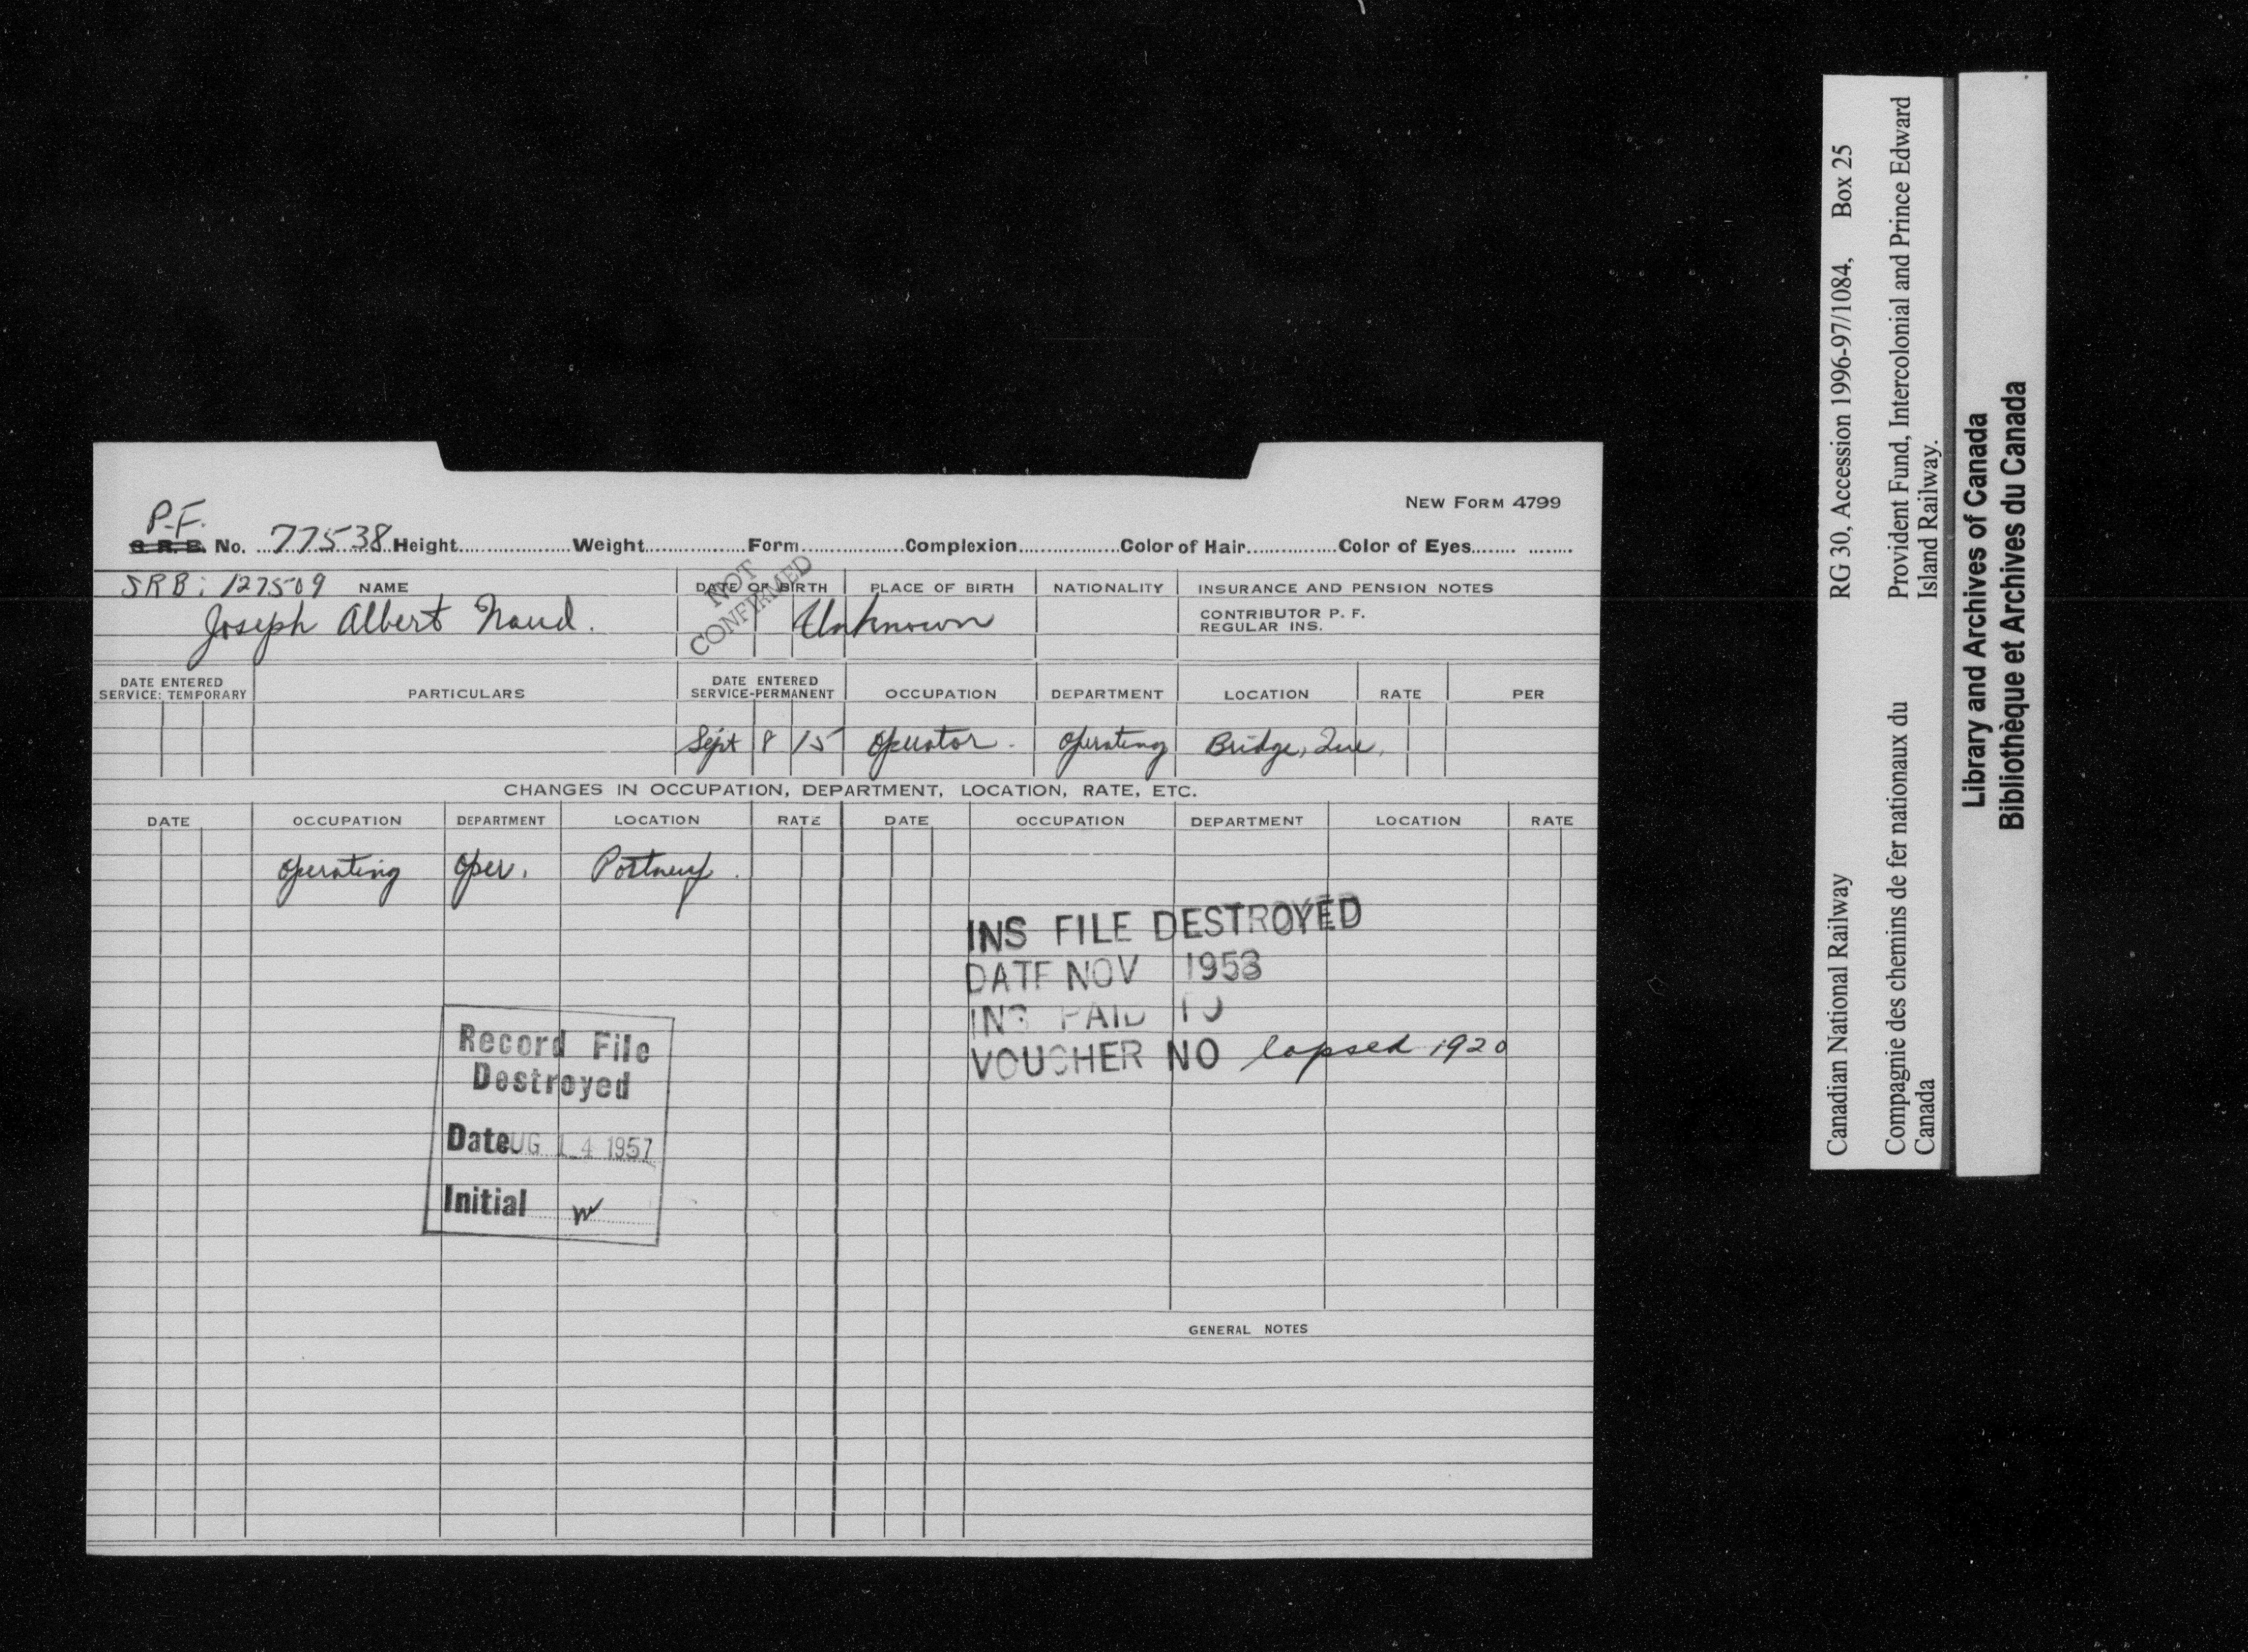 NEW FORM 4799
P.F.
S. R. B. No. 77538 Height Weight Form Complexion Color of Hair Color of Eyes
SRB: 127509 NAME DATE OF BIRTH PLACE OF BIRTH NATIONALITY INSURANCE AND PENSION NOTES
NOT CONFIRMED
Joseph Albert Naud. Unknown
CONTRIBUTOR P. F.
REGULAR INS.
DATE ENTERED SERVICE: TEMPORARY PARTICULARS DATE ENTERED SERVICE-PERMANENT OCCUPATION DEPARTMENT LOCATION RATE PER
Sept 8 15 Operator. Operating Bridge, Que.
CHANGES IN OCCUPATION, DEPARTMENT, LOCATION, RATE, ETC.
DATE OCCUPATION DEPARTMENT LOCATION RATE DATE OCCUPATION DEPARTMENT LOCATION RATE
Operating Oper. Portneuf.
INS FILE DESTROYED
DATE NOV 1953
INS PAID TO
VOUCHER NO lapsed 1920
Record File
Destroyed
Date UG 14 1957
Initial
GENERAL NOTES
Canadian National Railway RG 30, Accession 1996-97/1084, Box 25
Compagnie des chemins de fer nationaux du Canada
Provident Fund, Intercolonial and Prince Edward Island Railway.
Library and Archives of Canada
Bibliothèque et Archives du Canada